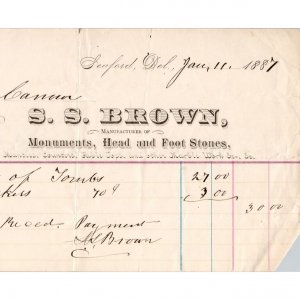 Seaford, Del., Jan, 11. 1887
Cannon
S. S. BROWN,
MANUFACTURER OF
Monuments, Head and Foot Stones,
of Tombs 27 00
70¢ 3 00
30 00
Recd. Payment
S S Brown